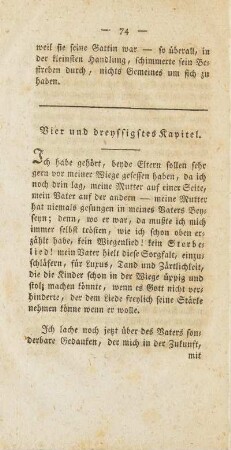 — 74 —
weil sie seine Gattin war — so überall, in
der kleinsten Handlung, schimmerte sein Be-
streben durch, nichts Gemeines um sich zu
haben.
Vier und dreyssigstes Kapitel.
Ich habe gehört, beyde Eltern sollen sehr
gern vor meiner Wiege gesessen haben, da ich
noch drin lag, meine Mutter auf einer Seite,
mein Vater auf der andern — meine Mutter
hat niemals gesungen in meines Vaters Bey-
seyn; denn, wo er war, da mußte ich mich
immer selbst trösten, wie ich schon oben er-
zählt habe, kein Wiegenlied! kein Sterbe-
lied! mein Vater hielt diese Sorgfalt, einzu-
schläfern, für Luxus, Tand und Zärtlichkeit,
die die Kinder schon in der Wiege üppig und
stolz machen könnte, wenn es Gott nicht ver-
hinderte, der dem Liede freylich seine Stärke
nehmen könne wenn er wolle.
Ich lache noch jetzt über des Vaters son-
derbare Gedanken, der mich in der Zukunft,
mit